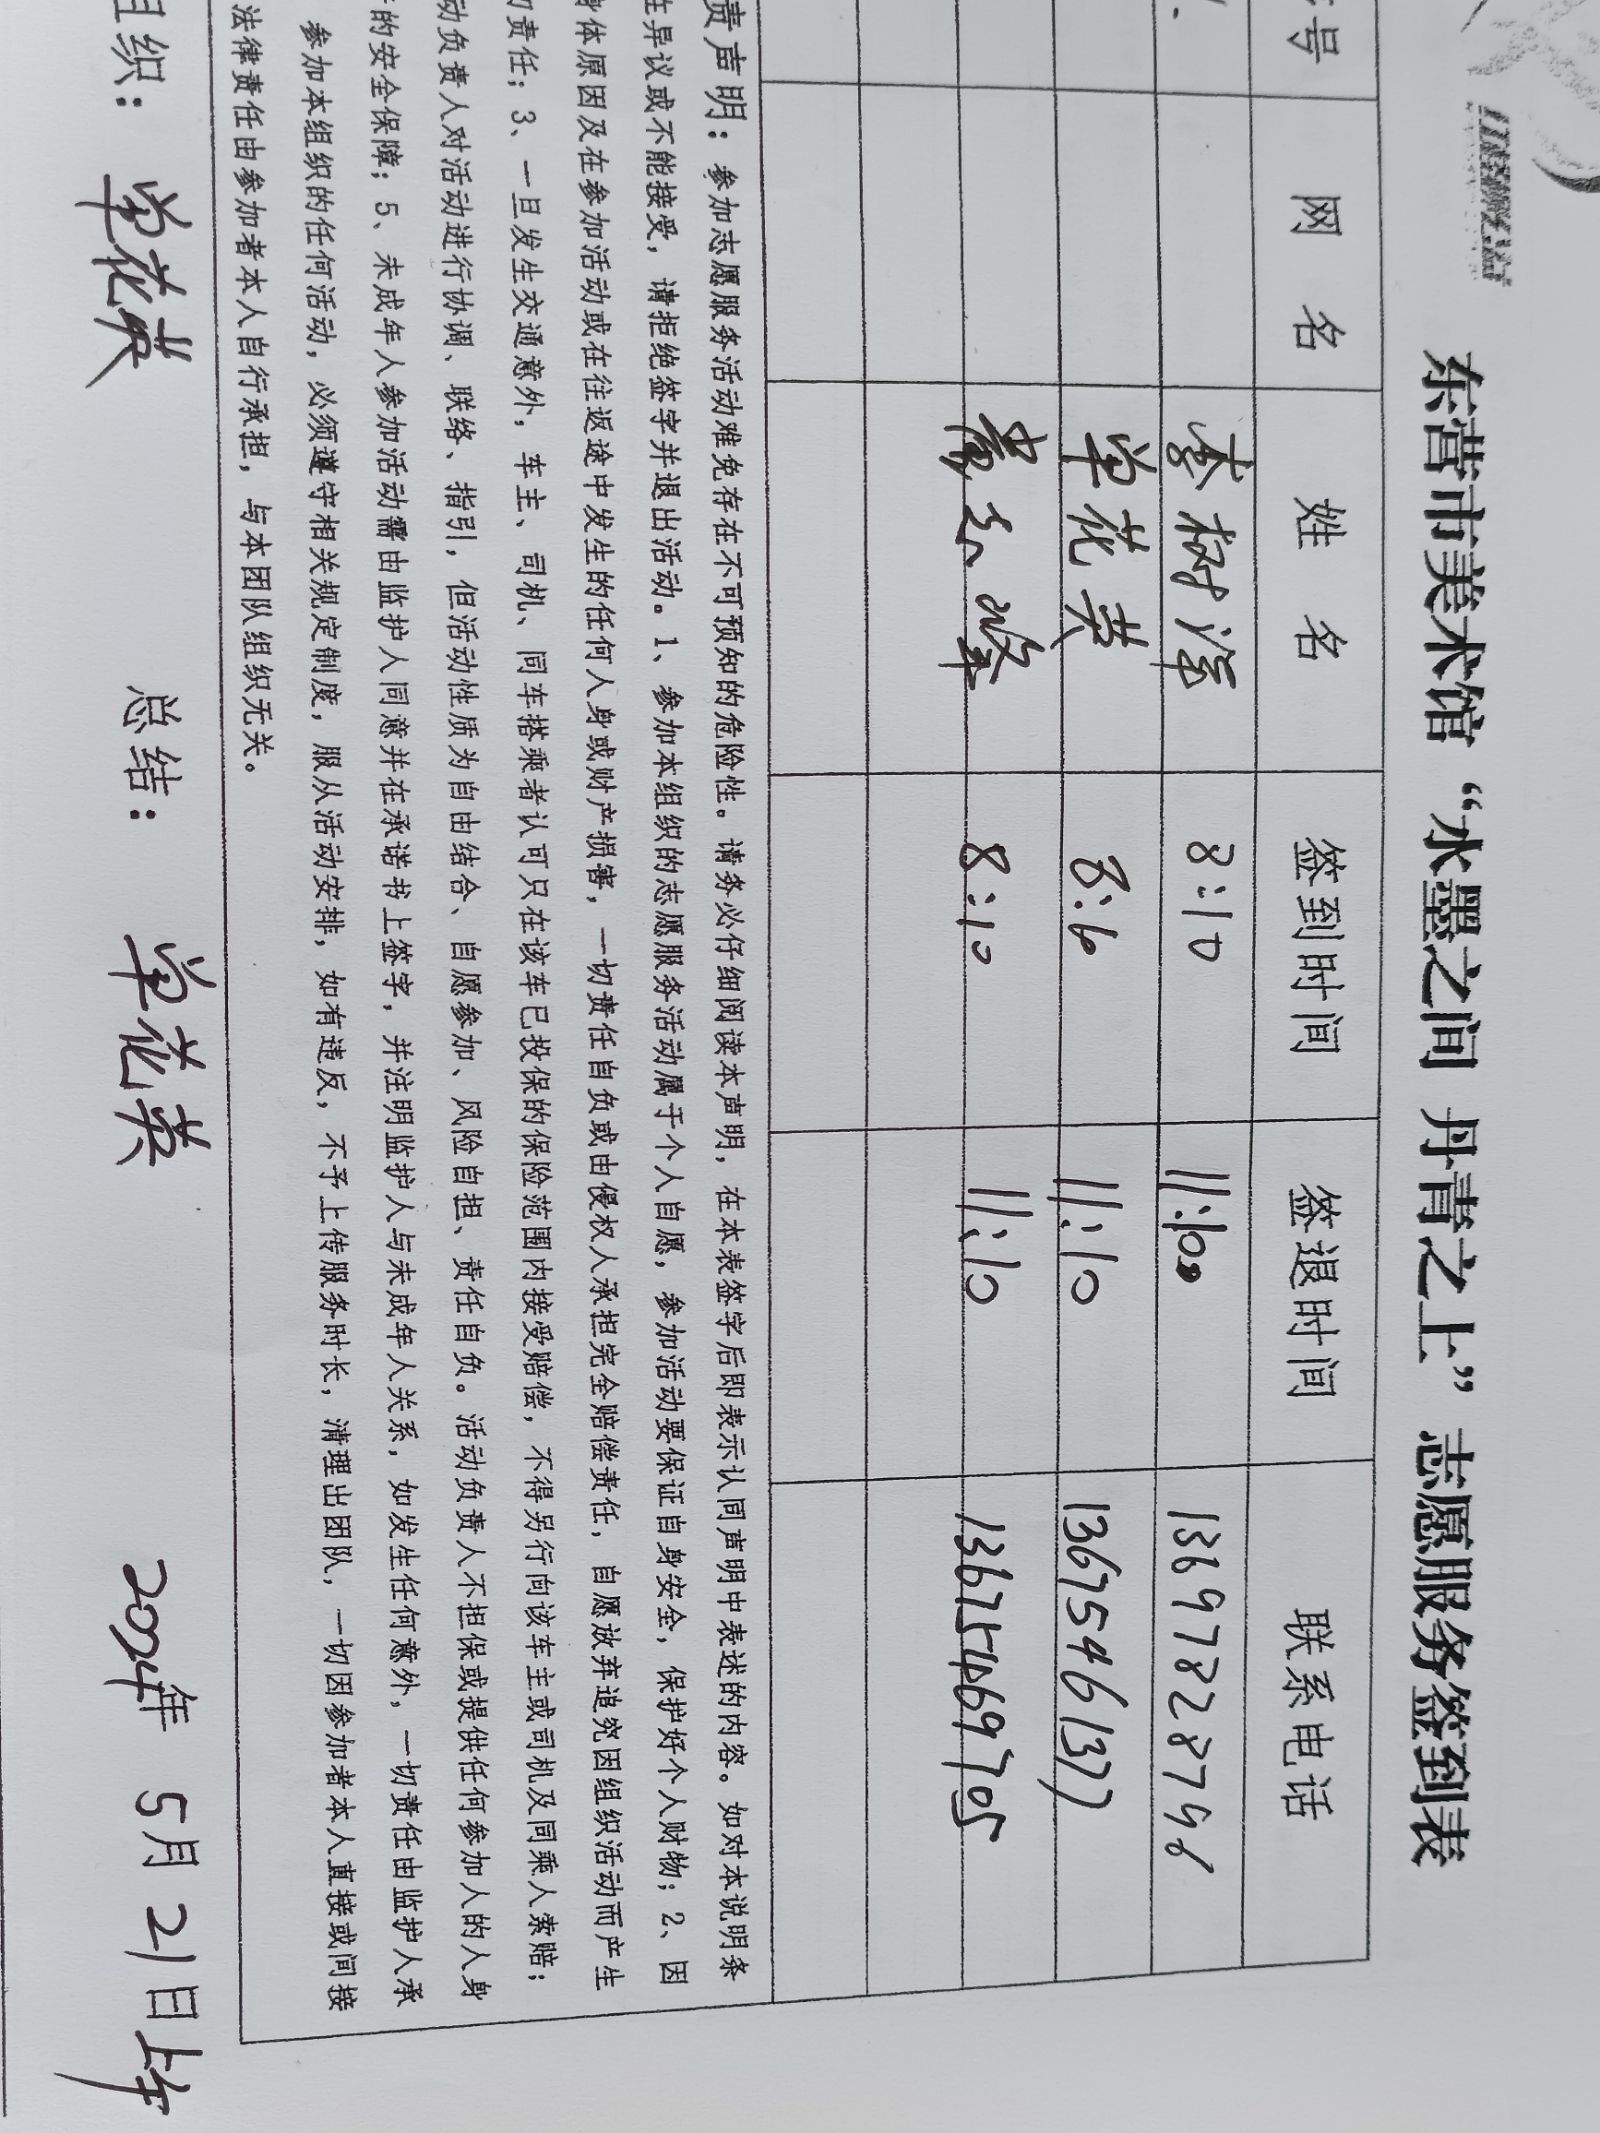 东营市美术馆“水墨之间 丹青之上”志愿服务签到表
号 网 名 姓 名 签到时间 签退时间 联系电话
李树泽 8:10 11:10 13697828796
单花英 8:6 11:10 13675461377
8:10 11:10 13675469705
责声明：参加志愿服务活动难免存在不可预知的危险性。请务必仔细阅读本声明，在本表签字后即表示认同声明中表述的内容。如对本说明条
生异议或不能接受，请拒绝签字并退出活动。1、参加本组织的志愿服务活动属于个人自愿，参加活动要保证自身安全，保护好个人财物；2、因
身体原因及在参加活动或在往返途中发生的任何人身或财产损害，一切责任自负或由侵权人承担完全赔偿责任，自愿放弃追究因组织活动而产生
的责任；3、一旦发生交通意外，车主、司机、同车搭乘者认可只在该车已投保的保险范围内接受赔偿，不得另行向该车主或司机及同乘人索赔；
动负责人对活动进行协调、联络、指引，但活动性质为自由结合、自愿参加、风险自担、责任自负。活动负责人不担保或提供任何参加人的人身
的安全保障；5、未成年人参加活动需由监护人同意并在承诺书上签字，并注明监护人与未成年人关系，如发生任何意外，一切责任由监护人承
参加本组织的任何活动，必须遵守相关规定制度，服从活动安排，如有违反，不予上传服务时长，清理出团队，一切因参加者本人直接或间接
法律责任由参加者本人自行承担，与本团队组织无关。
组织： 单花英 总结： 单花英 2024年 5月21日上午